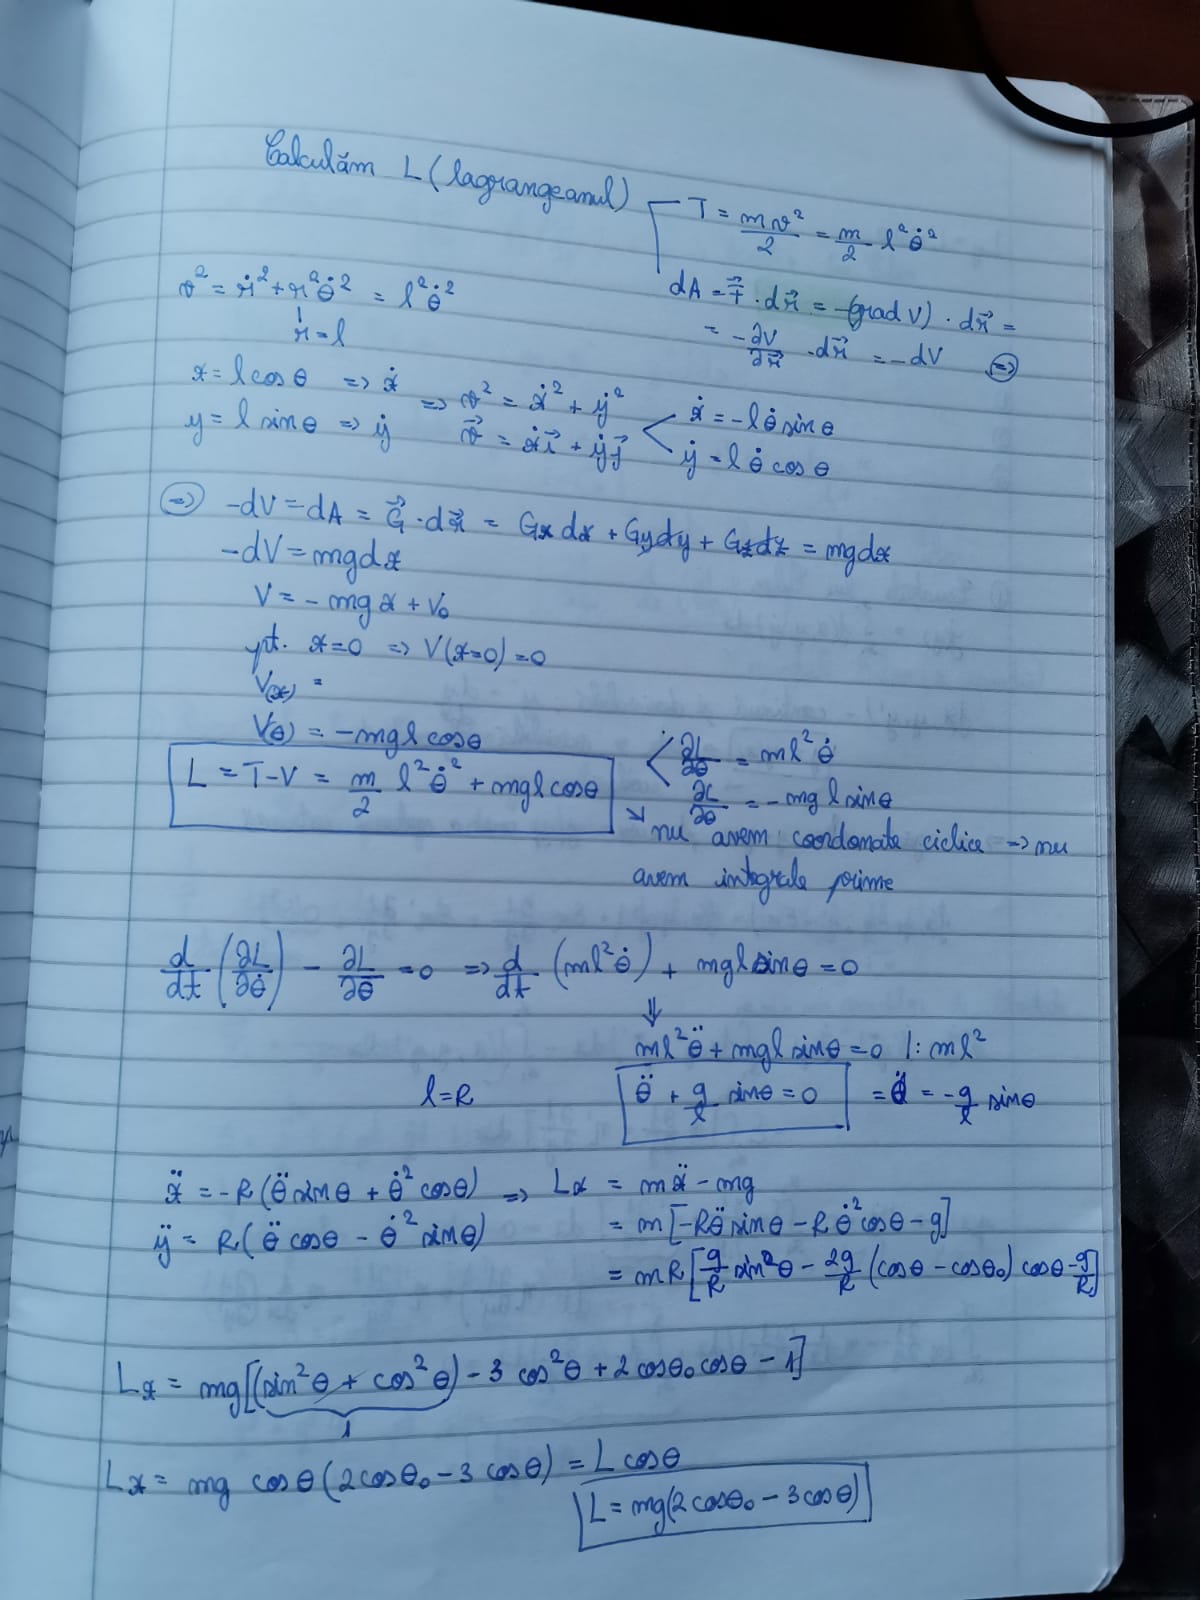 Calculăm L (lagrangeanul)
T = mv²/2 = m/2 l²θ̇²
v² = ṙ² + r²θ̇² = l²θ̇²
r = l
dA = F⃗ · dr⃗ = -(grad V) · dr⃗ =
= -∂V/∂r⃗ · dr⃗ = -dV ⇒
x = l cos θ => ẋ
y = l sin θ => ẏ
=> v² = ẋ² + ẏ²
v⃗ = ẋi⃗ + ẏj⃗
ẋ = -lθ̇ sin θ
ẏ = lθ̇ cos θ
⇒ -dV = dA = G⃗ · dr⃗ = Gx dx + Gy dy + Gz dz = mg dx
-dV = mg dx
V = -mg x + V₀
pt. x=0 => V(x=0) = 0
V(x) =
V(θ) = -mgl cos θ
L = T-V = m/2 l²θ̇² + mgl cos θ
∂L/∂θ̇ = ml²θ̇
∂L/∂θ = -mg l sin θ
nu avem coordonate ciclice => nu
avem integrale prime
d/dt (∂L/∂θ̇) - ∂L/∂θ = 0 => d/dt (ml²θ̇) + mgl sin θ = 0
⇓
ml²θ̈ + mgl sin θ = 0 |: ml²
l = R
θ̈ + g/l sin θ = 0 = θ̈ = -g/l sin θ
ẍ = -R(θ̈ sin θ + θ̇² cos θ) => Lx = mẍ - mg
ÿ = R(θ̈ cos θ - θ̇² sin θ)
= m[-Rθ̈ sin θ - Rθ̇² cos θ - g]
= mR[g/R sin²θ - 2g/R (cos θ - cos θ₀) cos θ - g/R]
Lx = mg[(sin²θ + cos²θ) - 3 cos²θ + 2 cos θ₀ cos θ - 1]
1
Lx = mg cos θ (2 cos θ₀ - 3 cos θ) = L cos θ
L = mg(2 cos θ₀ - 3 cos θ)